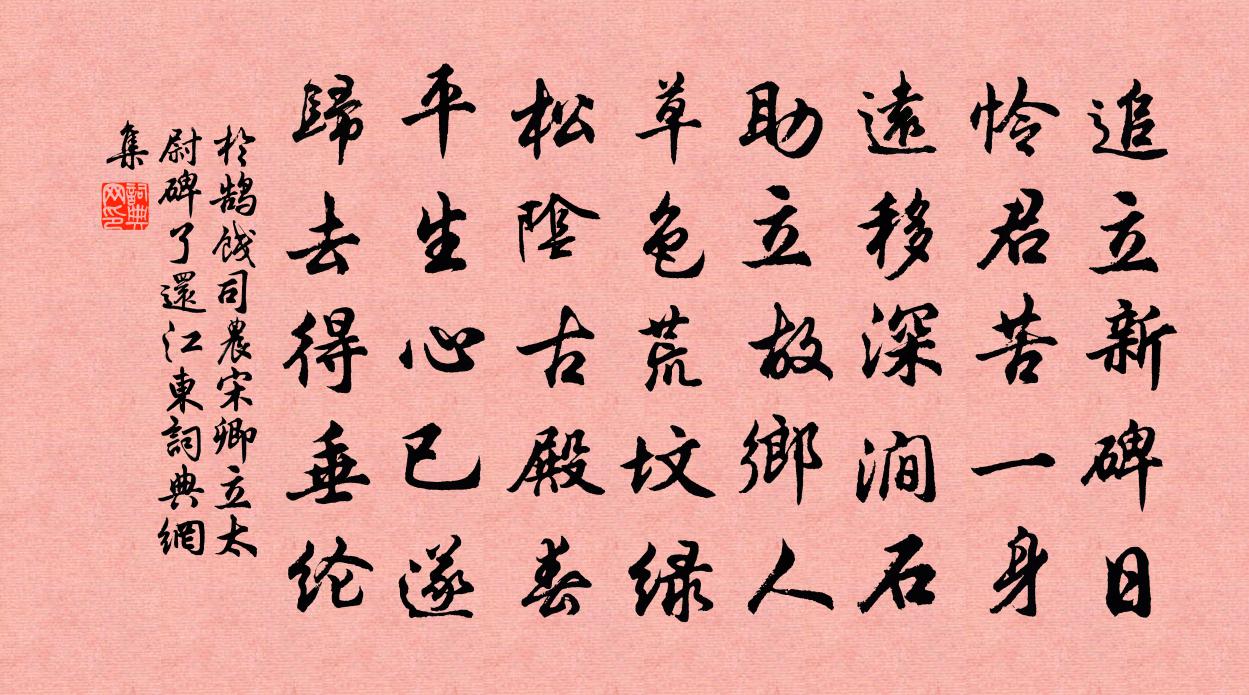 追立新碑日
怜君苦一身
遠移深澗石
助立故鄉人
草色荒坟绿
松陰古殿春
平生心已遂
歸去得垂纶
於鹄餞司農宋卿立太
尉碑了還江東詞典網
集
詞典网印